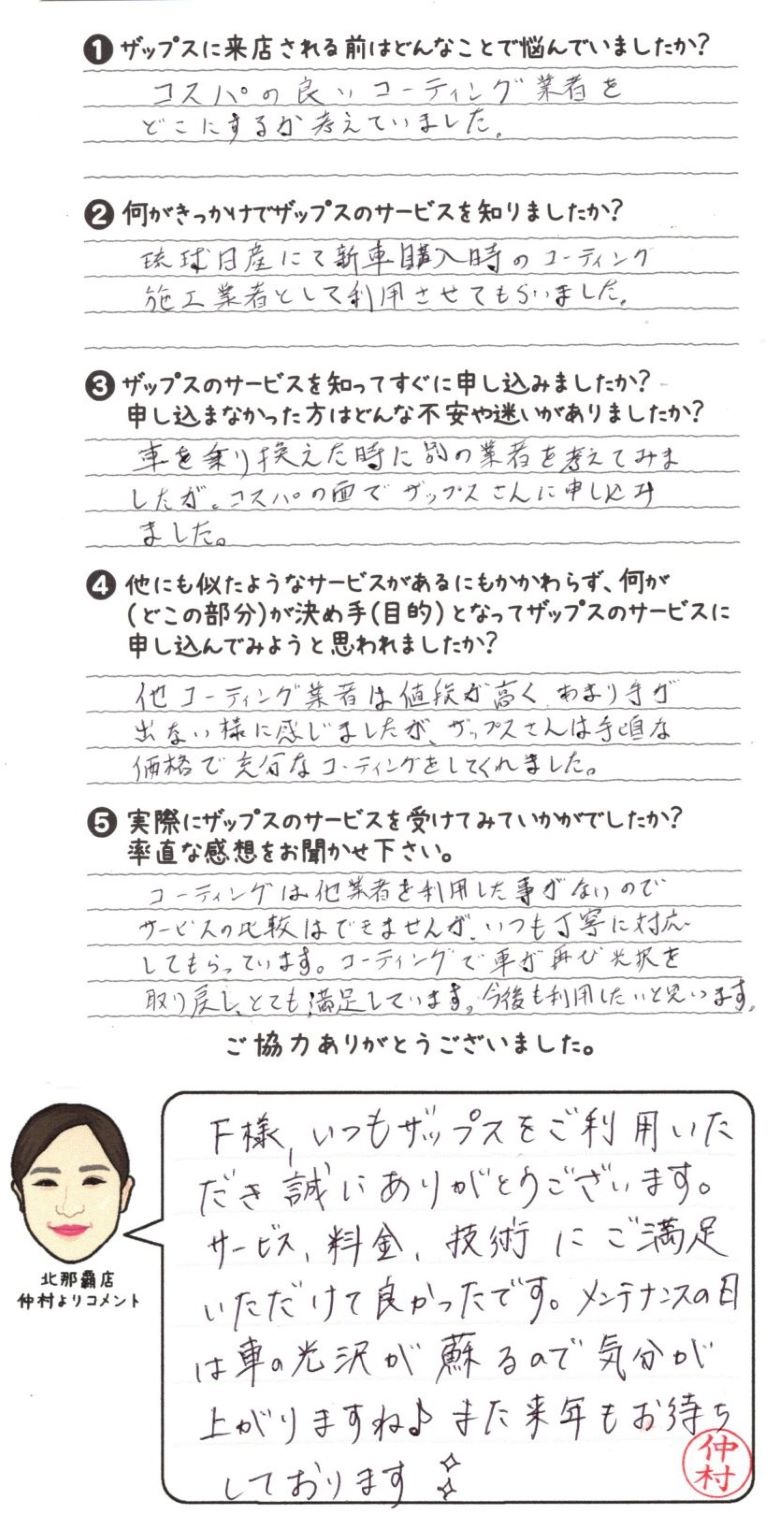 ❶ ザップスに来店される前はどんなことで悩んでいましたか?
コスパの良いコーティング業者を
どこにするか考えていました。
❷ 何がきっかけでザップスのサービスを知りましたか?
琉球日産にて新車購入時のコーティング
施工業者として利用させてもらいました。
❸ ザップスのサービスを知ってすぐに申し込みましたか?
申し込まなかった方はどんな不安や迷いがありましたか?
車を乗り換えた時に別の業者を考えてみま
したが。コスパの面でザップスさんに申し込み
ました。
❹ 他にも似たようなサービスがあるにもかかわらず、何が
(どこの部分)が決め手(目的)となってザップスのサービスに
申し込んでみようと思われましたか?
他コーティング業者は値段が高く、あまり手が
出ない様に感じましたが、ザップスさんは手頃な
価格で充分なコーティングをしてくれました。
❺ 実際にザップスのサービスを受けてみていかがでしたか?
率直な感想をお聞かせ下さい。
コーティングは他業者を利用した事がないので
サービスの比較はできませんが、いつも丁寧に対応
してもらっています。コーティングで車が再び光沢を
取り戻し、とても満足しています。今後も利用したいと思います。
ご協力ありがとうございました。
F様、いつもザップスをご利用いた
だき誠にありがとうございます。
サービス、料金、技術にご満足
いただけて良かったです。メンテナンスの日
は車の光沢が蘇るので気分が
上がりますね♪また来年もお待ち
しております
北那覇店
仲村よりコメント
仲村